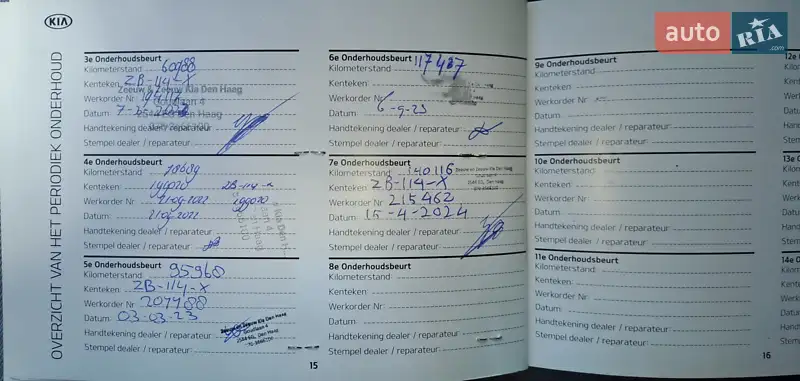 KIA
OVERZICHT VAN HET PERIODIEK ONDERHOUD
3e Onderhoudsbeurt
Kilometerstand: 60988
Kenteken: ZB-114-X
Werkorder Nr:
Datum:
Handtekening dealer / reparateur:
Stempel dealer / reparateur:
Zeeuw & Zeeuw Kia Den Haag
4e Onderhoudsbeurt
Kilometerstand: 78689
Kenteken: 199070 ZB-114-X
Werkorder Nr: 21-09-2022 199070
Datum: 21-09-2022
Handtekening dealer / reparateur:
Stempel dealer / reparateur:
5e Onderhoudsbeurt
Kilometerstand: 95960
Kenteken: ZB-114-X
Werkorder Nr: 207488
Datum: 03-03-23
Handtekening dealer / reparateur:
Stempel dealer / reparateur:
Zeeuw en Zeeuw Kia Den Haag
15
6e Onderhoudsbeurt
Kilometerstand: 117487
Kenteken:
Werkorder Nr:
Datum: 6-9-23
Handtekening dealer / reparateur:
Stempel dealer / reparateur:
7e Onderhoudsbeurt
Kilometerstand: 140116
Kenteken: ZB-114-X
Werkorder Nr: 215462
Datum: 15-4-2024
Handtekening dealer / reparateur:
Stempel dealer / reparateur:
Zeeuw en Zeeuw Kia Den Haag
8e Onderhoudsbeurt
Kilometerstand:
Kenteken:
Werkorder Nr:
Datum:
Handtekening dealer / reparateur:
Stempel dealer / reparateur:
9e Onderhoudsbeurt
Kilometerstand:
Kenteken:
Werkorder Nr:
Datum:
Handtekening dealer / reparateur:
Stempel dealer / reparateur:
10e Onderhoudsbeurt
Kilometerstand:
Kenteken:
Werkorder Nr:
Datum:
Handtekening dealer / reparateur:
Stempel dealer / reparateur:
11e Onderhoudsbeurt
Kilometerstand:
Kenteken:
Werkorder Nr:
Datum:
Handtekening dealer / reparateur:
Stempel dealer / reparateur:
16
12e
13e
14e
auto RIA.com